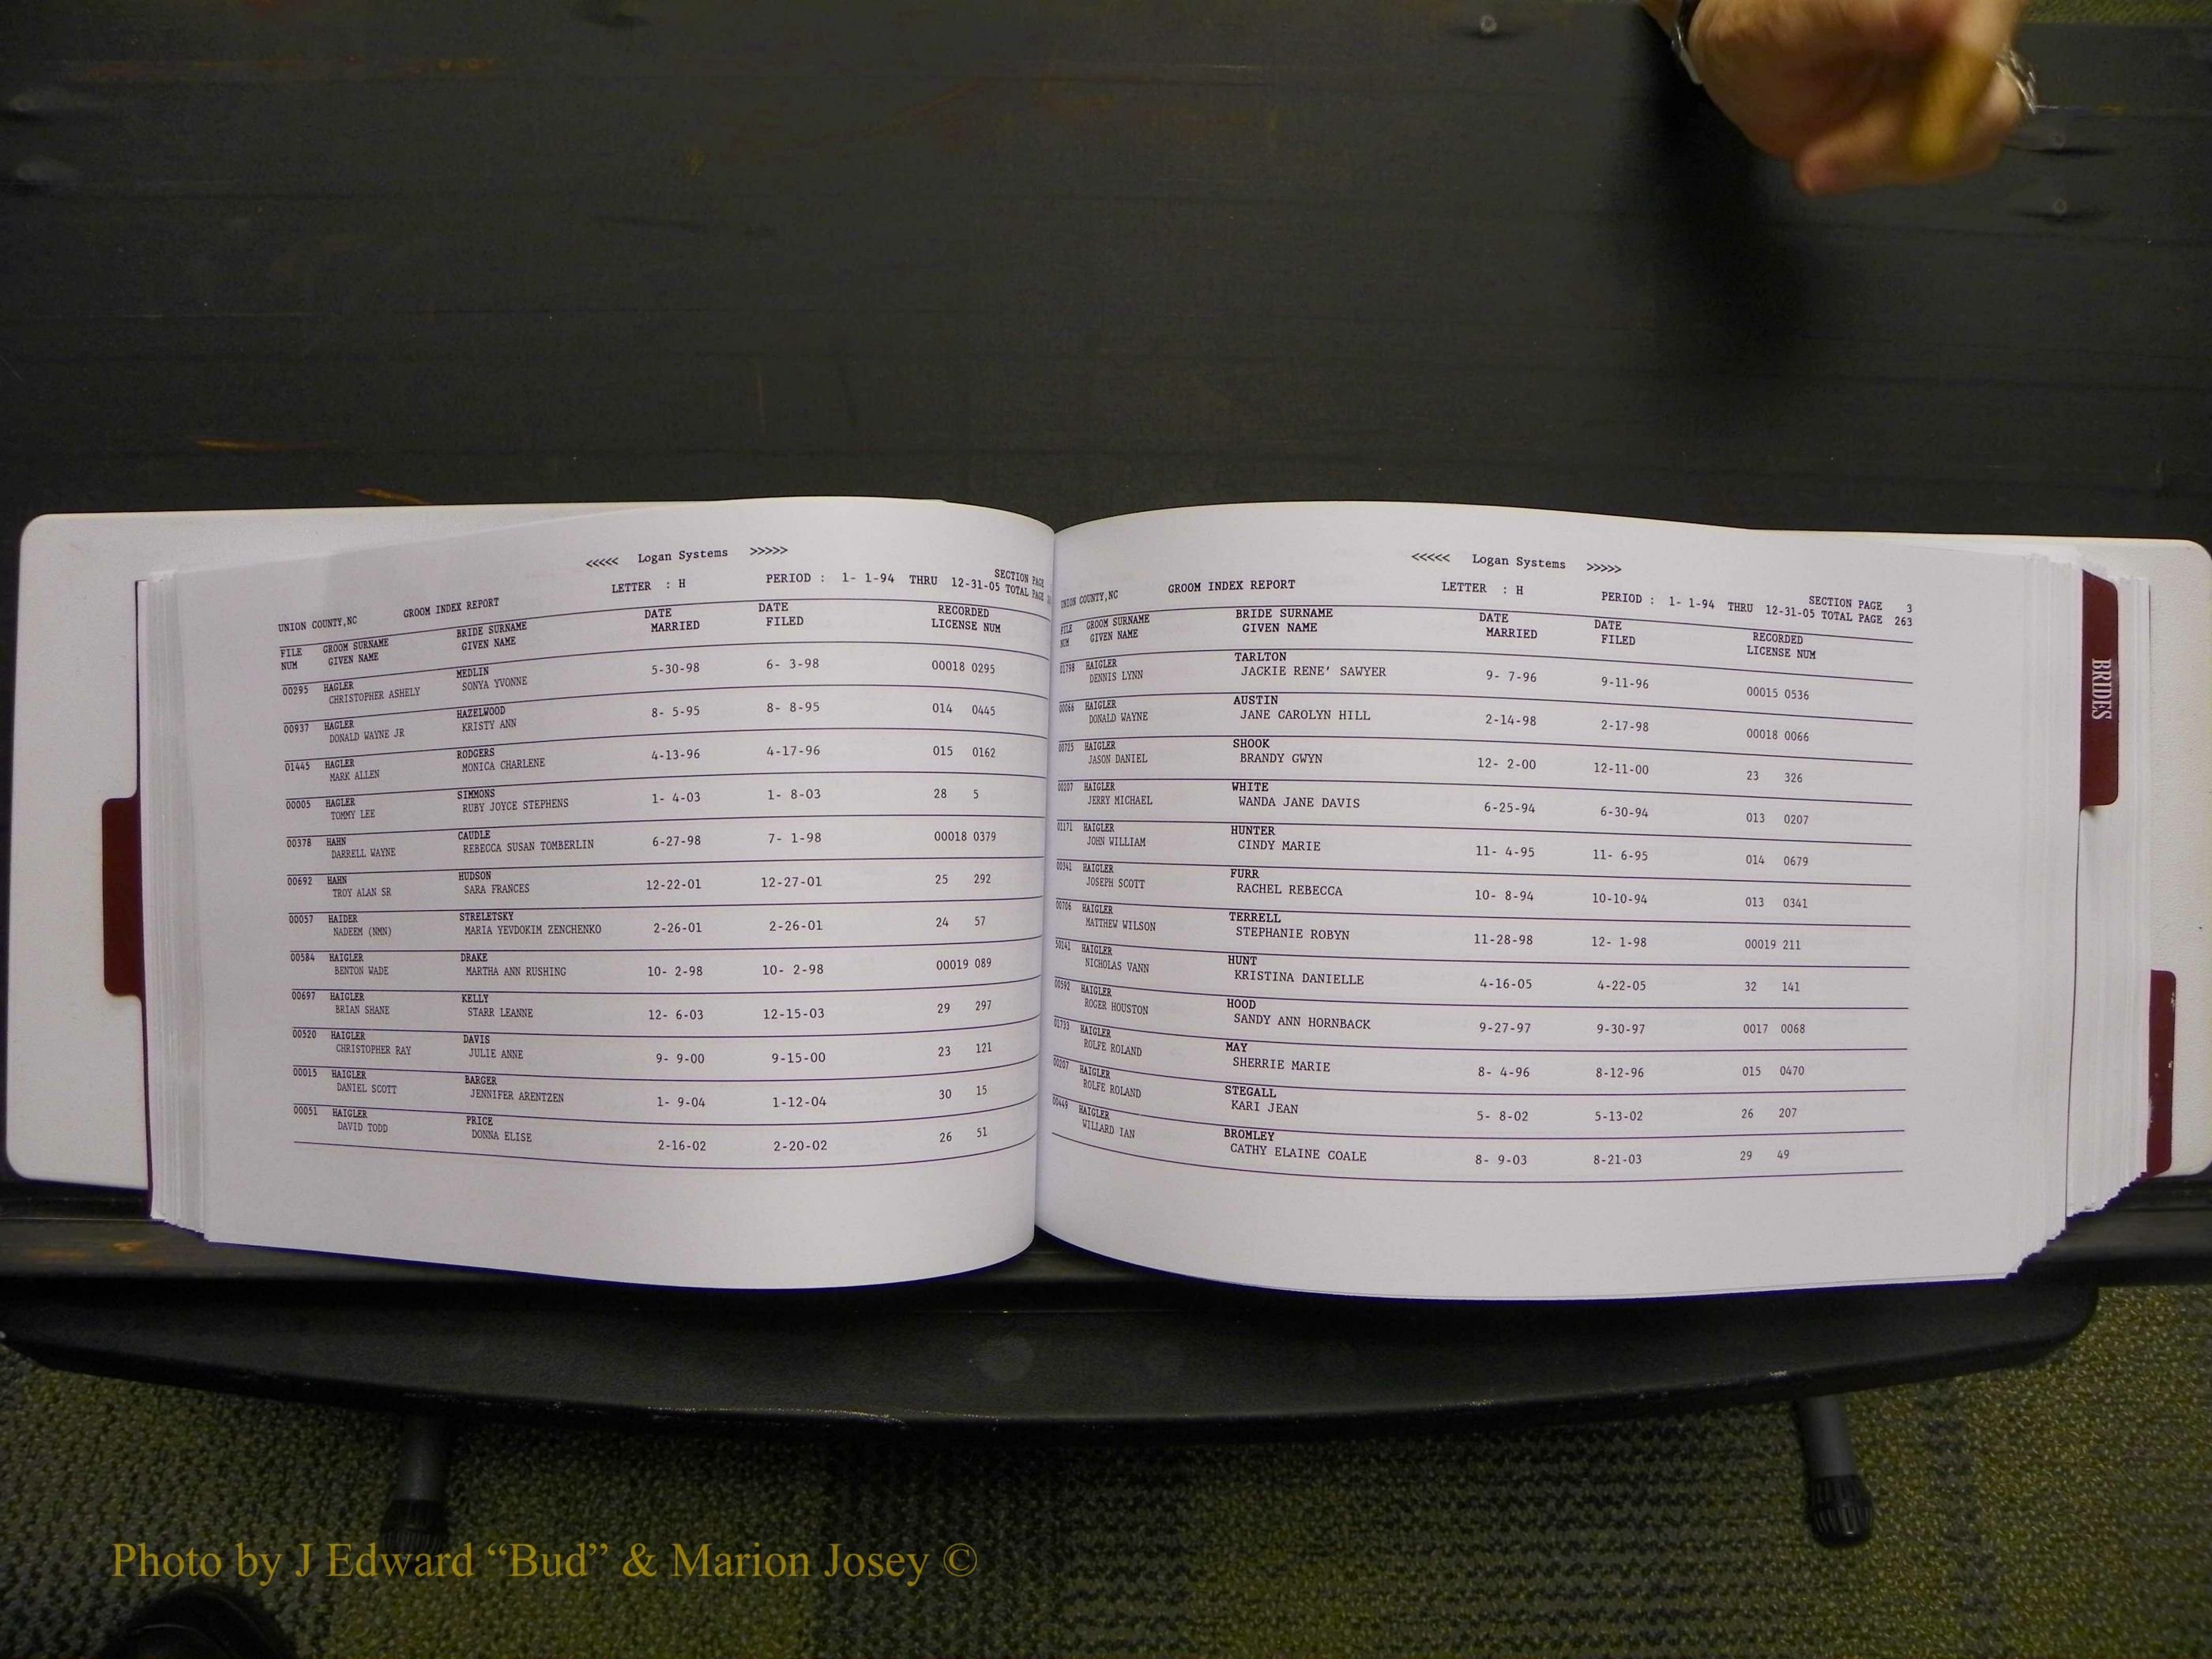 <<<<< Logan Systems >>>>>
UNION COUNTY,NC GROOM INDEX REPORT LETTER : H PERIOD : 1- 1-94 THRU 12-31-05 SECTION PAGE
TOTAL PAGE
FILE GROOM SURNAME BRIDE SURNAME DATE DATE RECORDED
NUM GIVEN NAME GIVEN NAME MARRIED FILED LICENSE NUM
00295 HAGLER MEDLIN 5-30-98 6- 3-98 00018 0295
CHRISTOPHER ASHELY SONYA YVONNE
00937 HAGLER HAZELWOOD 8- 5-95 8- 8-95 014 0445
DONALD WAYNE JR KRISTY ANN
01445 HAGLER RODGERS 4-13-96 4-17-96 015 0162
MARK ALLEN MONICA CHARLENE
00005 HAGLER SIMMONS 1- 4-03 1- 8-03 28 5
TOMMY LEE RUBY JOYCE STEPHENS
00378 HAHN CAUDLE 6-27-98 7- 1-98 00018 0379
DARRELL WAYNE REBECCA SUSAN TOMBERLIN
00692 HAHN HUDSON 12-22-01 12-27-01 25 292
TROY ALAN SR SARA FRANCES
00057 HAIDER STRELETSKY 2-26-01 2-26-01 24 57
NADEEM (NMN) MARIA YEVDOKIM ZENCHENKO
00584 HAIGLER DRAKE 10- 2-98 10- 2-98 00019 089
BENTON WADE MARTHA ANN RUSHING
00697 HAIGLER KELLY 12- 6-03 12-15-03 29 297
BRIAN SHANE STARR LEANNE
00520 HAIGLER DAVIS 9- 9-00 9-15-00 23 121
CHRISTOPHER RAY JULIE ANNE
00015 HAIGLER BARGER 1- 9-04 1-12-04 30 15
DANIEL SCOTT JENNIFER ARENTZEN
00051 HAIGLER PRICE 2-16-02 2-20-02 26 51
DAVID TODD DONNA ELISE
<<<<< Logan Systems >>>>>
UNION COUNTY,NC GROOM INDEX REPORT LETTER : H PERIOD : 1- 1-94 THRU 12-31-05 SECTION PAGE 3
TOTAL PAGE 263
FILE GROOM SURNAME BRIDE SURNAME DATE DATE RECORDED
NUM GIVEN NAME GIVEN NAME MARRIED FILED LICENSE NUM
01798 HAIGLER TARLTON 9- 7-96 9-11-96 00015 0536
DENNIS LYNN JACKIE RENE' SAWYER
00066 HAIGLER AUSTIN 2-14-98 2-17-98 00018 0066
DONALD WAYNE JANE CAROLYN HILL
00725 HAIGLER SHOOK 12- 2-00 12-11-00 23 326
JASON DANIEL BRANDY GWYN
00207 HAIGLER WHITE 6-25-94 6-30-94 013 0207
JERRY MICHAEL WANDA JANE DAVIS
01171 HAIGLER HUNTER 11- 4-95 11- 6-95 014 0679
JOHN WILLIAM CINDY MARIE
00341 HAIGLER FURR 10- 8-94 10-10-94 013 0341
JOSEPH SCOTT RACHEL REBECCA
00706 HAIGLER TERRELL 11-28-98 12- 1-98 00019 211
MATTHEW WILSON STEPHANIE ROBYN
50141 HAIGLER HUNT 4-16-05 4-22-05 32 141
NICHOLAS VANN KRISTINA DANIELLE
00592 HAIGLER HOOD 9-27-97 9-30-97 0017 0068
ROGER HOUSTON SANDY ANN HORNBACK
01733 HAIGLER MAY 8- 4-96 8-12-96 015 0470
ROLFE ROLAND SHERRIE MARIE
00207 HAIGLER STEGALL 5- 8-02 5-13-02 26 207
ROLFE ROLAND KARI JEAN
00449 HAIGLER BROMLEY 8- 9-03 8-21-03 29 49
WILLARD IAN CATHY ELAINE COALE
BRIDES
Photo by J Edward “Bud” & Marion Josey ©